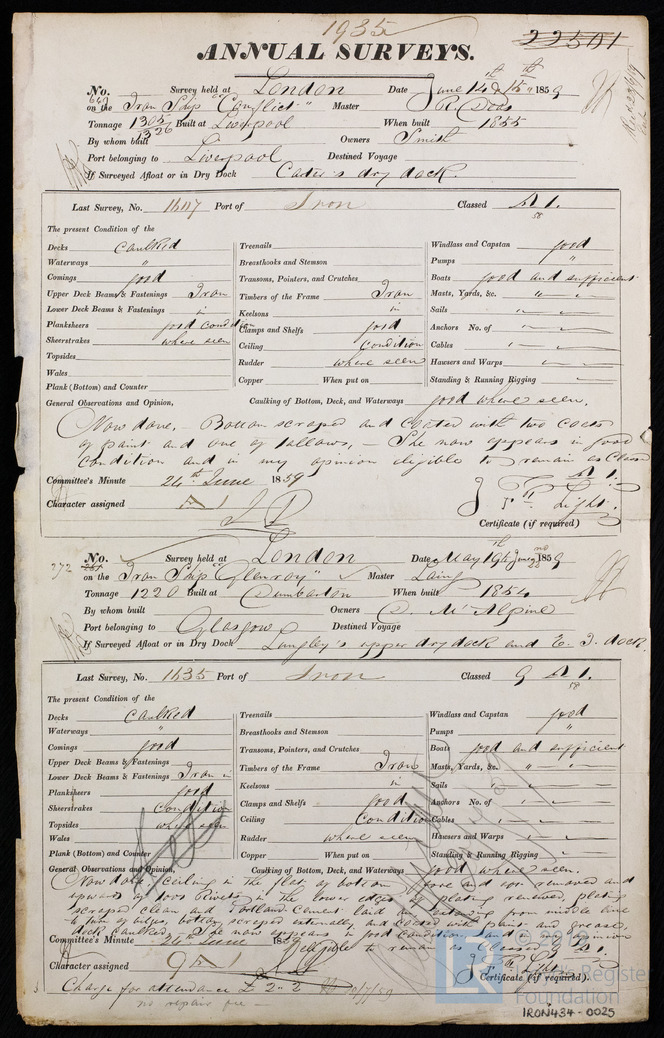 1935
22501
ANNUAL SURVEYS.
No. 667 Survey held at London Date June 14th & 15th 1859
on the Iron Ship "Conflict" Master R. Deas
Tonnage 1305 1326 Built at Liverpool When built 1855
By whom built Owners Smith
Port belonging to Liverpool Destined Voyage
If Surveyed Afloat or in Dry Dock Cater's dry dock.
Last Survey, No. Port of Iron Classed A 1. 58
The present Condition of the
Decks caulked
Waterways "
Comings good
Upper Deck Beams & Fastenings Iron
Lower Deck Beams & Fastenings in
Planksheers good condition
Sheerstrakes where seen
Topsides
Wales
Plank (Bottom) and Counter
Treenails
Breasthooks and Stemson
Transoms, Pointers, and Crutches
Timbers of the Frame Iron
Keelsons in
Clamps and Shelfs good
Ceiling condition
Rudder where seen
Copper When put on
Windlass and Capstan good
Pumps "
Boats good and sufficient
Masts, Yards, &c. " "
Sails " "
Anchors No. of
Cables
Hawsers and Warps
Standing & Running Rigging
General Observations and Opinion, Caulking of Bottom, Deck, and Waterways good where seen.
Now done. - Bottom scraped and coated with two coats
of paint and one of tallows, - She now appears in good
condition and in my opinion eligible to remain as Classed
A 1.
Committee's Minute 24th June 1859
Character assigned A 1
Light.
Certificate (if required)
272
No. Survey held at London Date May 19th June 22nd 1859
on the Iron Ship "Glenroy" Master Laing
Tonnage 1220 Built at Dumbarton When built 1854
By whom built Owners D. McAlpine
Port belonging to Glasgow Destined Voyage
If Surveyed Afloat or in Dry Dock Langley's upper dry dock and E. I. dock.
Last Survey, No. 1635 Port of Iron Classed 9 A 1. 58
The present Condition of the
Decks caulked
Waterways "
Comings good
Upper Deck Beams & Fastenings
Lower Deck Beams & Fastenings Iron in
Planksheers good
Sheerstrakes condition
Topsides where seen
Wales
Plank (Bottom) and Counter
Treenails
Breasthooks and Stemson
Transoms, Pointers, and Crutches
Timbers of the Frame Iron
Keelsons in
Clamps and Shelfs good
Ceiling Condition
Rudder where seen
Copper When put on
Windlass and Capstan good
Pumps "
Boats good and sufficient
Masts, Yards, &c. " "
Sails
Anchors No. of
Cables
Hawsers and Warps
Standing & Running Rigging
General Observations and Opinion, Caulking of Bottom, Deck, and Waterways good where seen.
Now done. Ceiling in the flat of bottom fore and aft removed and
upwards of 1000 Rivets in the lower edges of plating renewed, plating
scraped clean and Portland Cement laid on extending from middle line
to turn of bilges, bottom scraped externally and coated with paint and grease,
deck caulked. She now appears in good condition, and in my opinion
eligible to remain as Classed 9 A 1.
Committee's Minute 24th June 1859
Character assigned 9 A 1
Certificate (if required).
Charge for attendance £ 2 " 2
no repair fee -
© 2019
Lloyd's Register
Foundation
IRON434-0025